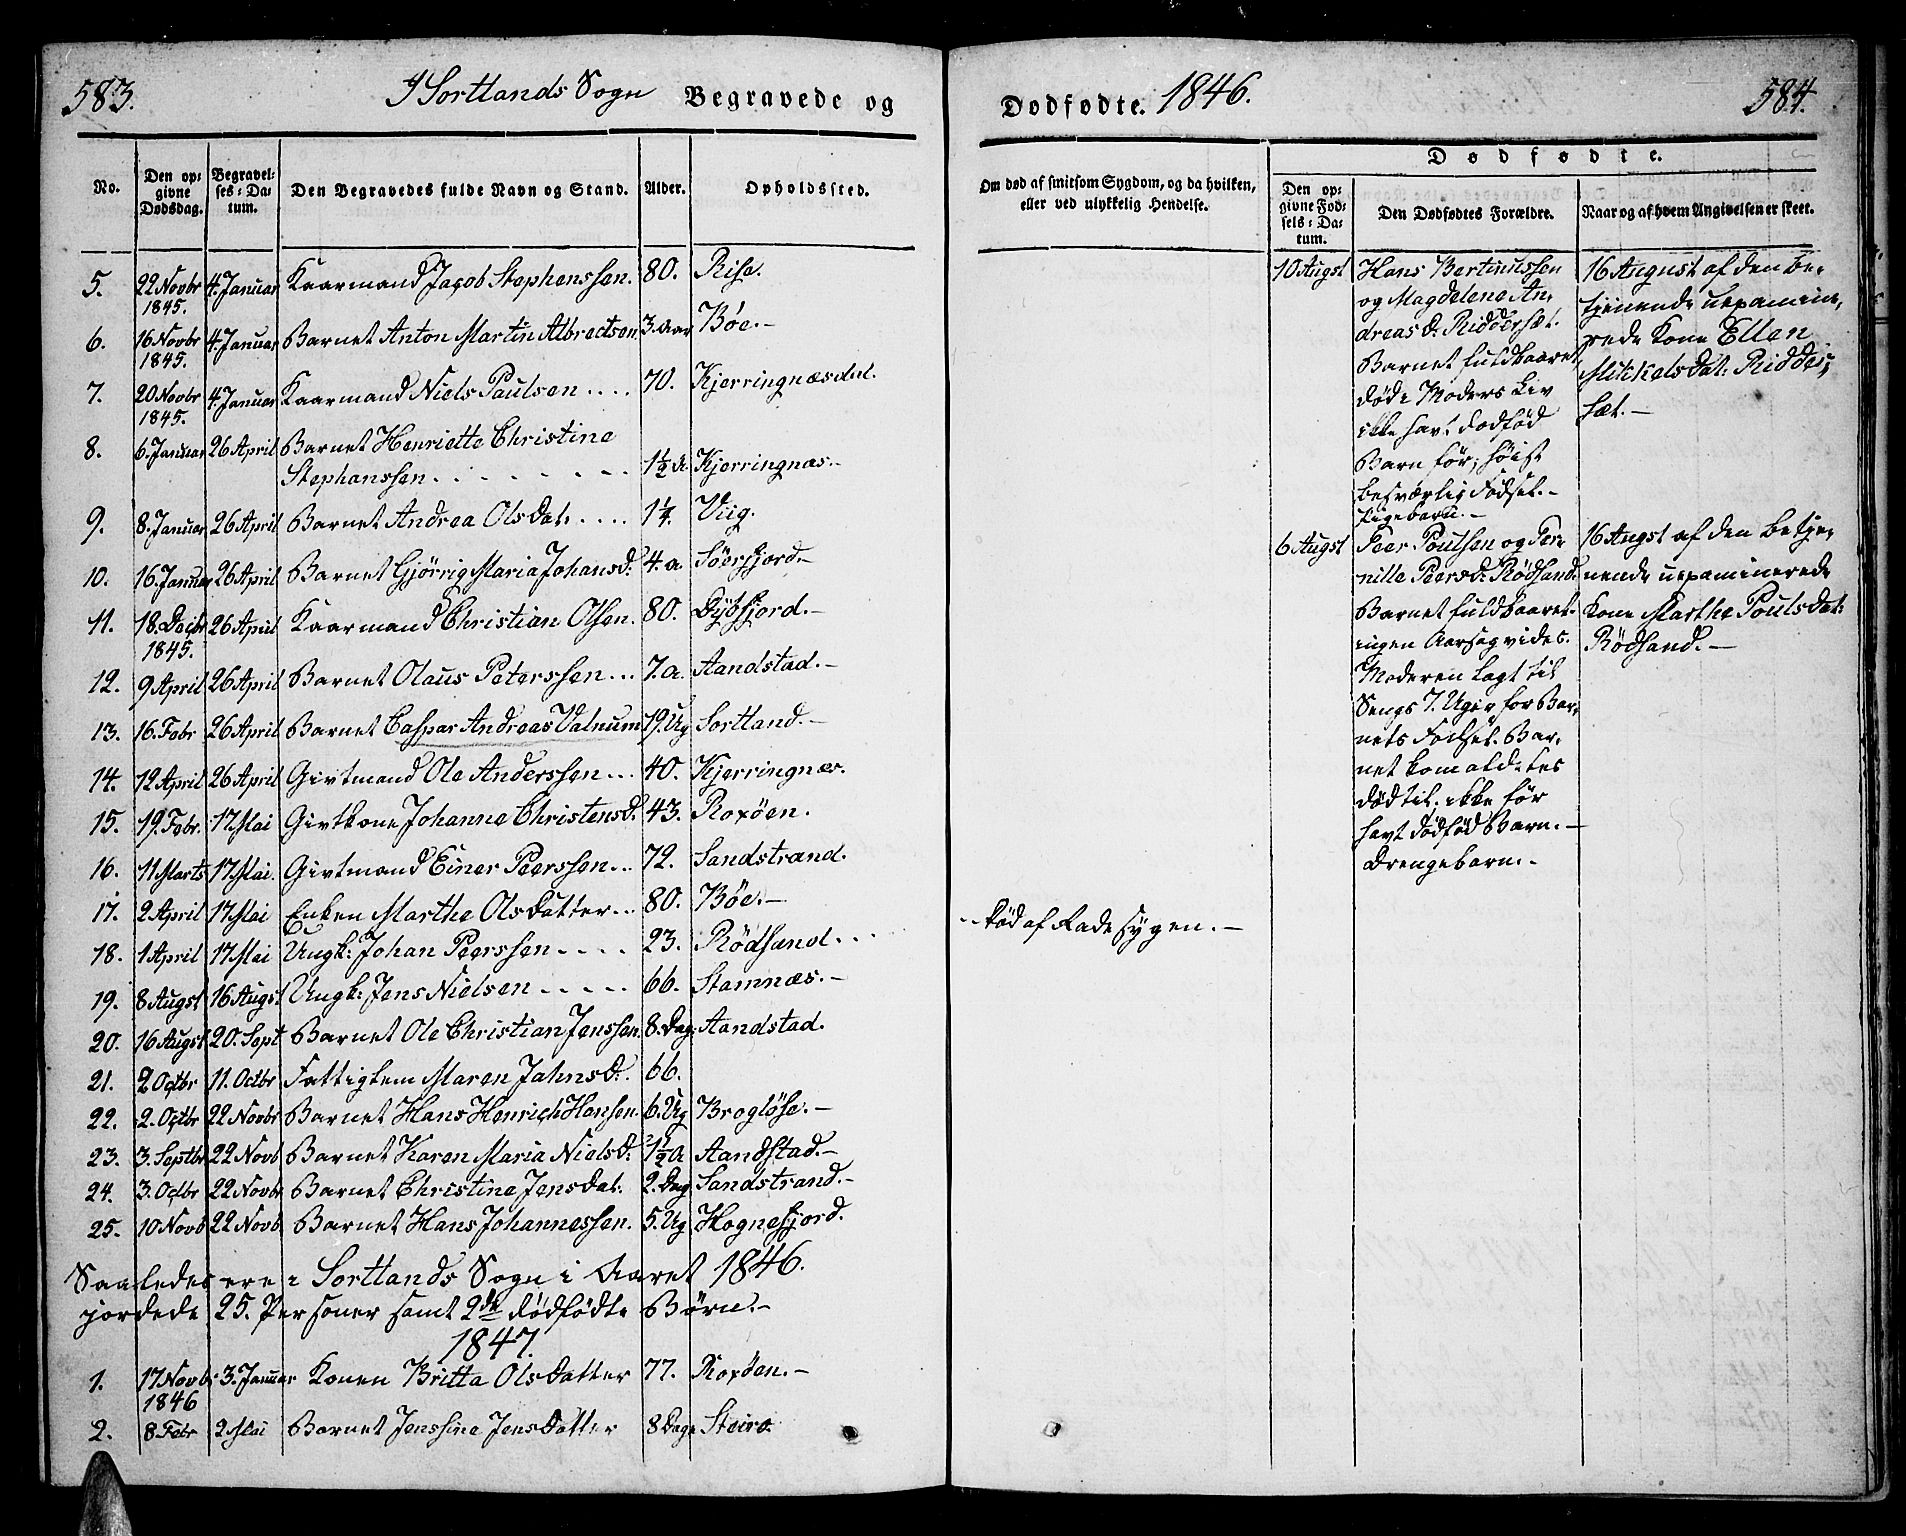 583.
I Sortlands Sogn Begravede og
No.
Den opgivne Dødsdag.
Begravelses-Datum.
Den Begravedes fulde Navn og Stand.
Alder.
Opholdssted.
5. 22 Novbr 1845. 4. Januar Kaarmand Jacob Stephenssen. 80. Rise.
6. 16 Novbr 1845. 4. Januar Barnet Anton Martin Albrectsen. 3. Aar Bøe. –
7. 20 Novbr 1845. 4. Januar Kaarmand Niels Paulsen .... 70. Kjerringnæsdal.
8. 6. Januar 26 April Barnet Henriette Christine
Stephanssen . . . 1½ A. Kjerringnæs. –
9. 8. Januar 26 April Barnet Andrea Olsdat: .... 1¼. Viig.
10. 16. Januar 26 April Barnet Gjørrig Maria Johansd. 4. a. Søerfjord. –
11. 18. Decbr 1845. 26 April Kaarmand Christian Olsen. 80. fjord. –
12. 9 April 26 April Barnet Olaus Peterssen ... 7. a. Aandstad. –
13. 16. Febr 26 April Barnet Caspar Andreas Valnum 19. Ug Sortland. –
14. 12 April 26 April Givtmand Ole Anderssen ... 40. Kjerringnæs.
15. 19. Febr. 17 Mai Givtkone Johanne Christensd. 43. Roxøen.
16. 11 Marts 17 Mai. Givtmand Einer Peerssen ... 72. Sandstrand.
17. 2 April 17 Mai Enken Marthe Olsdatter .. 80. Bøe. –
18. 1 April 17 Mai Ungk: Johan Peerssen .... 23. Rødsand ...
19. 8 Augst 16 Augst Ungk: Jens Nielsen ..... 66. Stamnæs. –
20. 16 Augst 20. Sept Barnet Ole Christian Jenssen. 8. Dag: Aandstad.
21. 2 Octbr 11. Octbr Fattiglem Maren Jahnsd: 66.
22. 2. Octbr 22 Novbr Barnet Hans Henrich Hansen. 6. Ug Brogløse. –
23. 3. Septbr 22 Novb Barnet Karen Maria Nielsd: 1½ a Aandstad. –
24. 3. Octbr 22 Novbr Barnet Christine Jensdat: 2. Dag Sandstrand. –
25. 10 Novb 22 Novb Barnet Hans Johannessen. 5. Ug Hognefjord.
Saaledes ere i Sortlands Sogn i Aaret 1846.
jordede 25. Personer samt 2de dødfødte Børn. –
1847.
1. 17 Novbr 1846 3. Januar Konen Britta Olsdatter 77. Roxøen. –
2. 8 Febr 2 Mai Barnet Jenssine Jensdatter 8 Dage Steiro
Dødfødte. 1846.
584.
Om død af smitsom Sygdom, og da hvilken,
eller ved ulykkelig Hendelse.
Dødfødte.
Den opgivne Fødsels-Datum.
Den Dødfødtes Forældre.
Naar og af hvem Angivelsen er skeet.
.. død af Radesygen. –
10 Augst
Hans Bertinussen
og Magdelene An-
dreasd: Riddersæt.
Barnet fuldbaaret,
død i Moders Liv
ikke havt dødfød
Barn før; høist
besværlig Fødsel. –
Pigebarn. –
16 August af den be-
tjenende uexamine-
rede Kone Ellen
Mikkelsdat: Ridder-
sæt. –
6 Augst
Peer Poulsen og Per-
nille Peersd: Rødsand.
Barnet fuldbaaret.
ingen Aarsag vides.
Moderen lagt til
Sengs 7. Uger for Bar-
nets Fødsel. Bar-
net kom aldeles
død til; ikke før
havt dødfød Barn. –
Drengebarn. –
16 Augst af den betje-
nende uexaminerede
Kone Marthe Poulsdat:
Rødsand. –